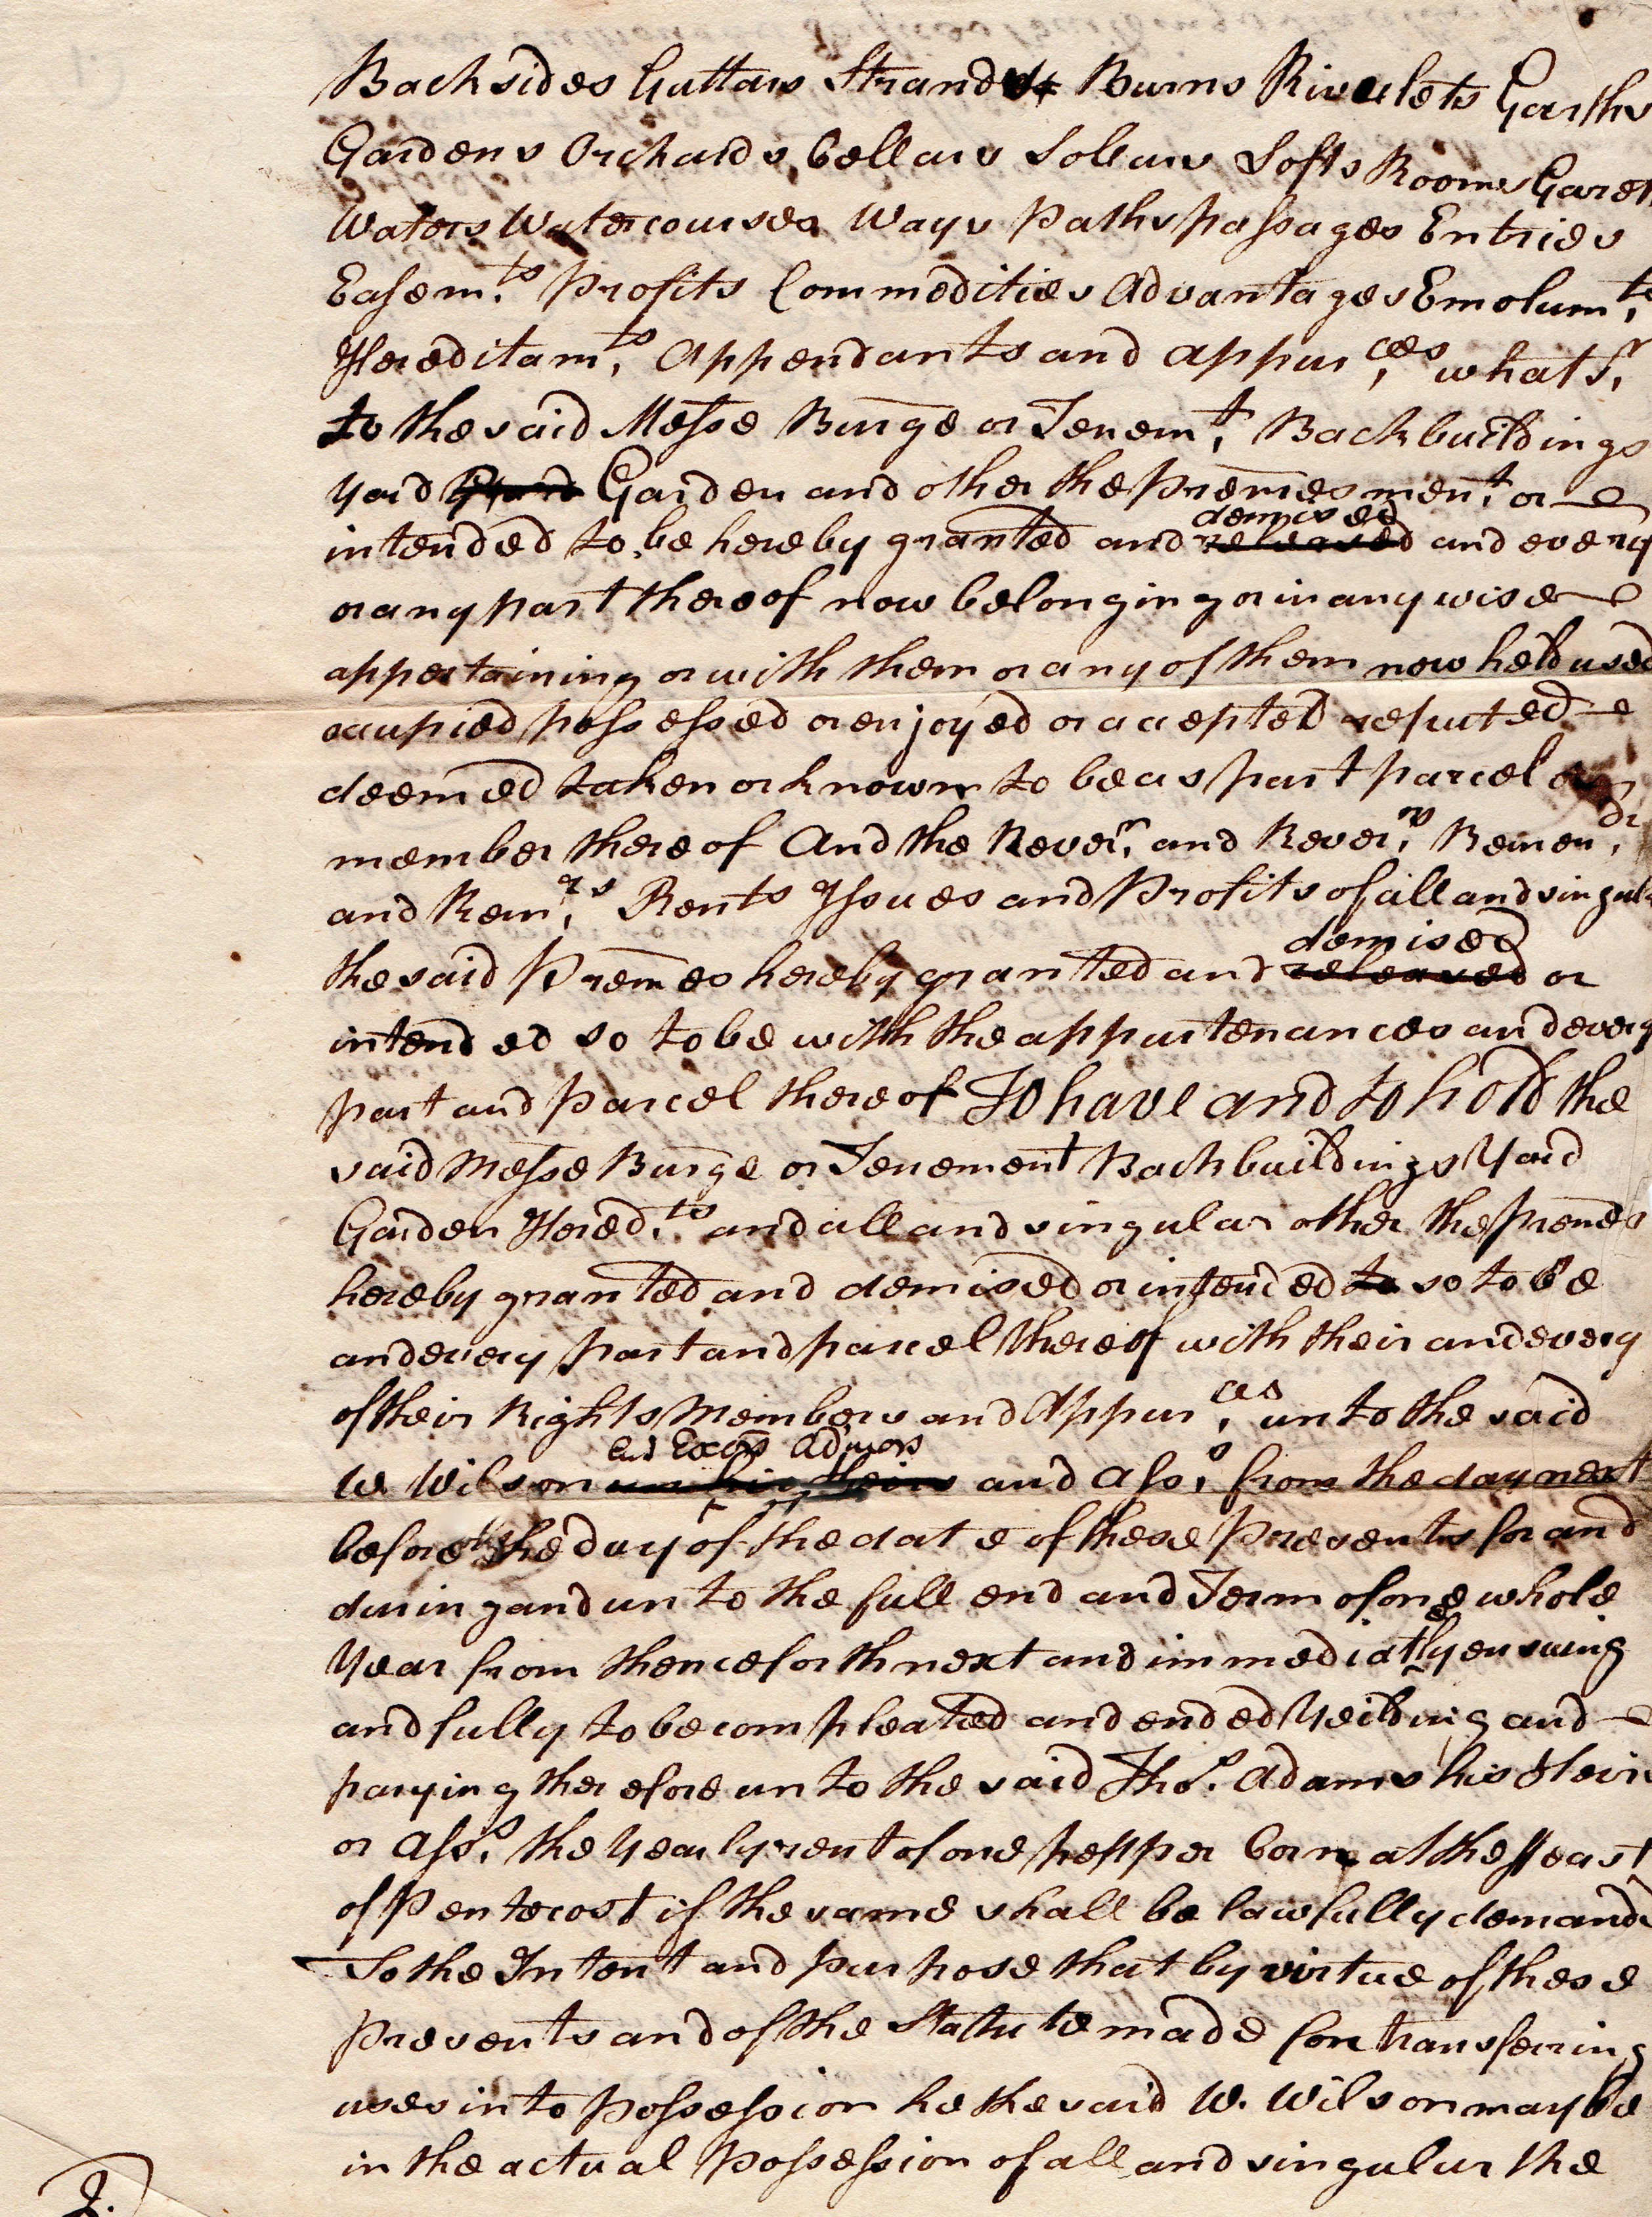 Backsides Guttars Strands Burns Rivulets Garths
Gardens Orchards Cellars Sollars Lofts Rooms Garets
Waters Watercourses Ways Paths passages Entries
Easem.ts Profits Commodities Advantages Emolum.ts
Hereditam.ts Appendants and appur.ces whats.r
to the said Messe Burge or Tenem.t Backbuildings
yard Garden and other the Premes ment.d or
intended to be hereby granted and demised released and every
or any part thereof now belonging or in any wise
appertaining or with them or any of them now held used
occupied possessed or enjoyed or accepted reputed
deemed taken or known to be as part parcel or
member thereof And the Rever.n and Rever.ns Remen.dr
and Rem.rs Rents Issues and Profits of all and singular
the said Premes hereby granted and demised released or
intended so to be with the appurtenances and every
part and parcel thereof To have and to hold the
said Messe Burge or Tenement Backbuildings Yard
Garden Hered.ts and all and singular other the premes
hereby granted and demised or intended to so to be
and every part and parcel thereof with their and every
of their Rights Members and Appur.ces unto the said
W. Wilson his Exors Admors and Ass.s from the day next
before the day of the date of these Presents for and
during and unto the full end and Term of one whole
Year from thenceforth next and immediately ensuing
and fully to be compleated and ended Yeilding and
paying therefore unto the said Tho.s Adams his Heirs
or Ass.s the Yearly rent of one pepper Corn at the Feast
of Pentecost if the same shall be lawfully demanded
To the Intent and purpose that by virtue of these
presents and of the Statute made for transferring
uses into possession he the said W. Wilson may be
in the actual Possession of all and singular the
2.